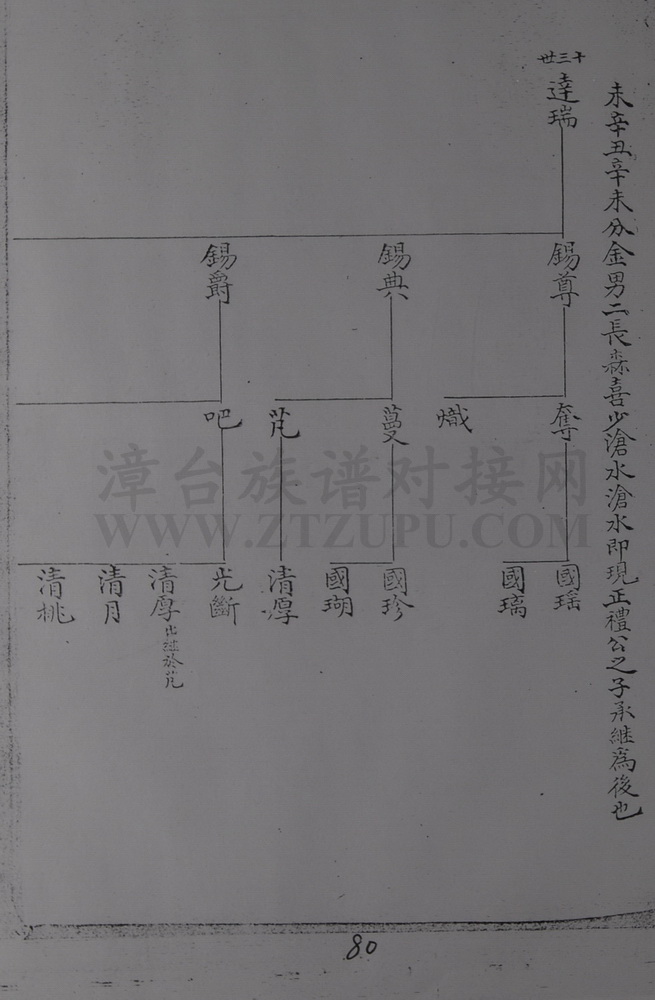 未辛丑辛未分金男二長森喜少滄水滄水即現正禮公之子承継為後也
十三世
達瑞
錫尊
錫典
錫爵
奪
熾
蔓
芃
吧
國瑤
國璃
國珍
國瑚
清厚
光斷
清厚出継於芃
清月
清桃
漳台族谱对接网
WWW.ZTZUPU.COM
80